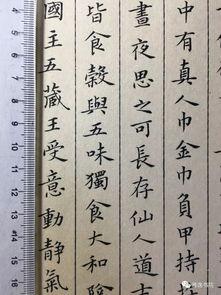 中有真人巾金巾負甲持
晝夜思之可長存仙人道士
皆食穀與五味獨食大和陰
國主五藏王受意動靜氣
4
5
6
7
8
9
10
11
12
13
14
15
16